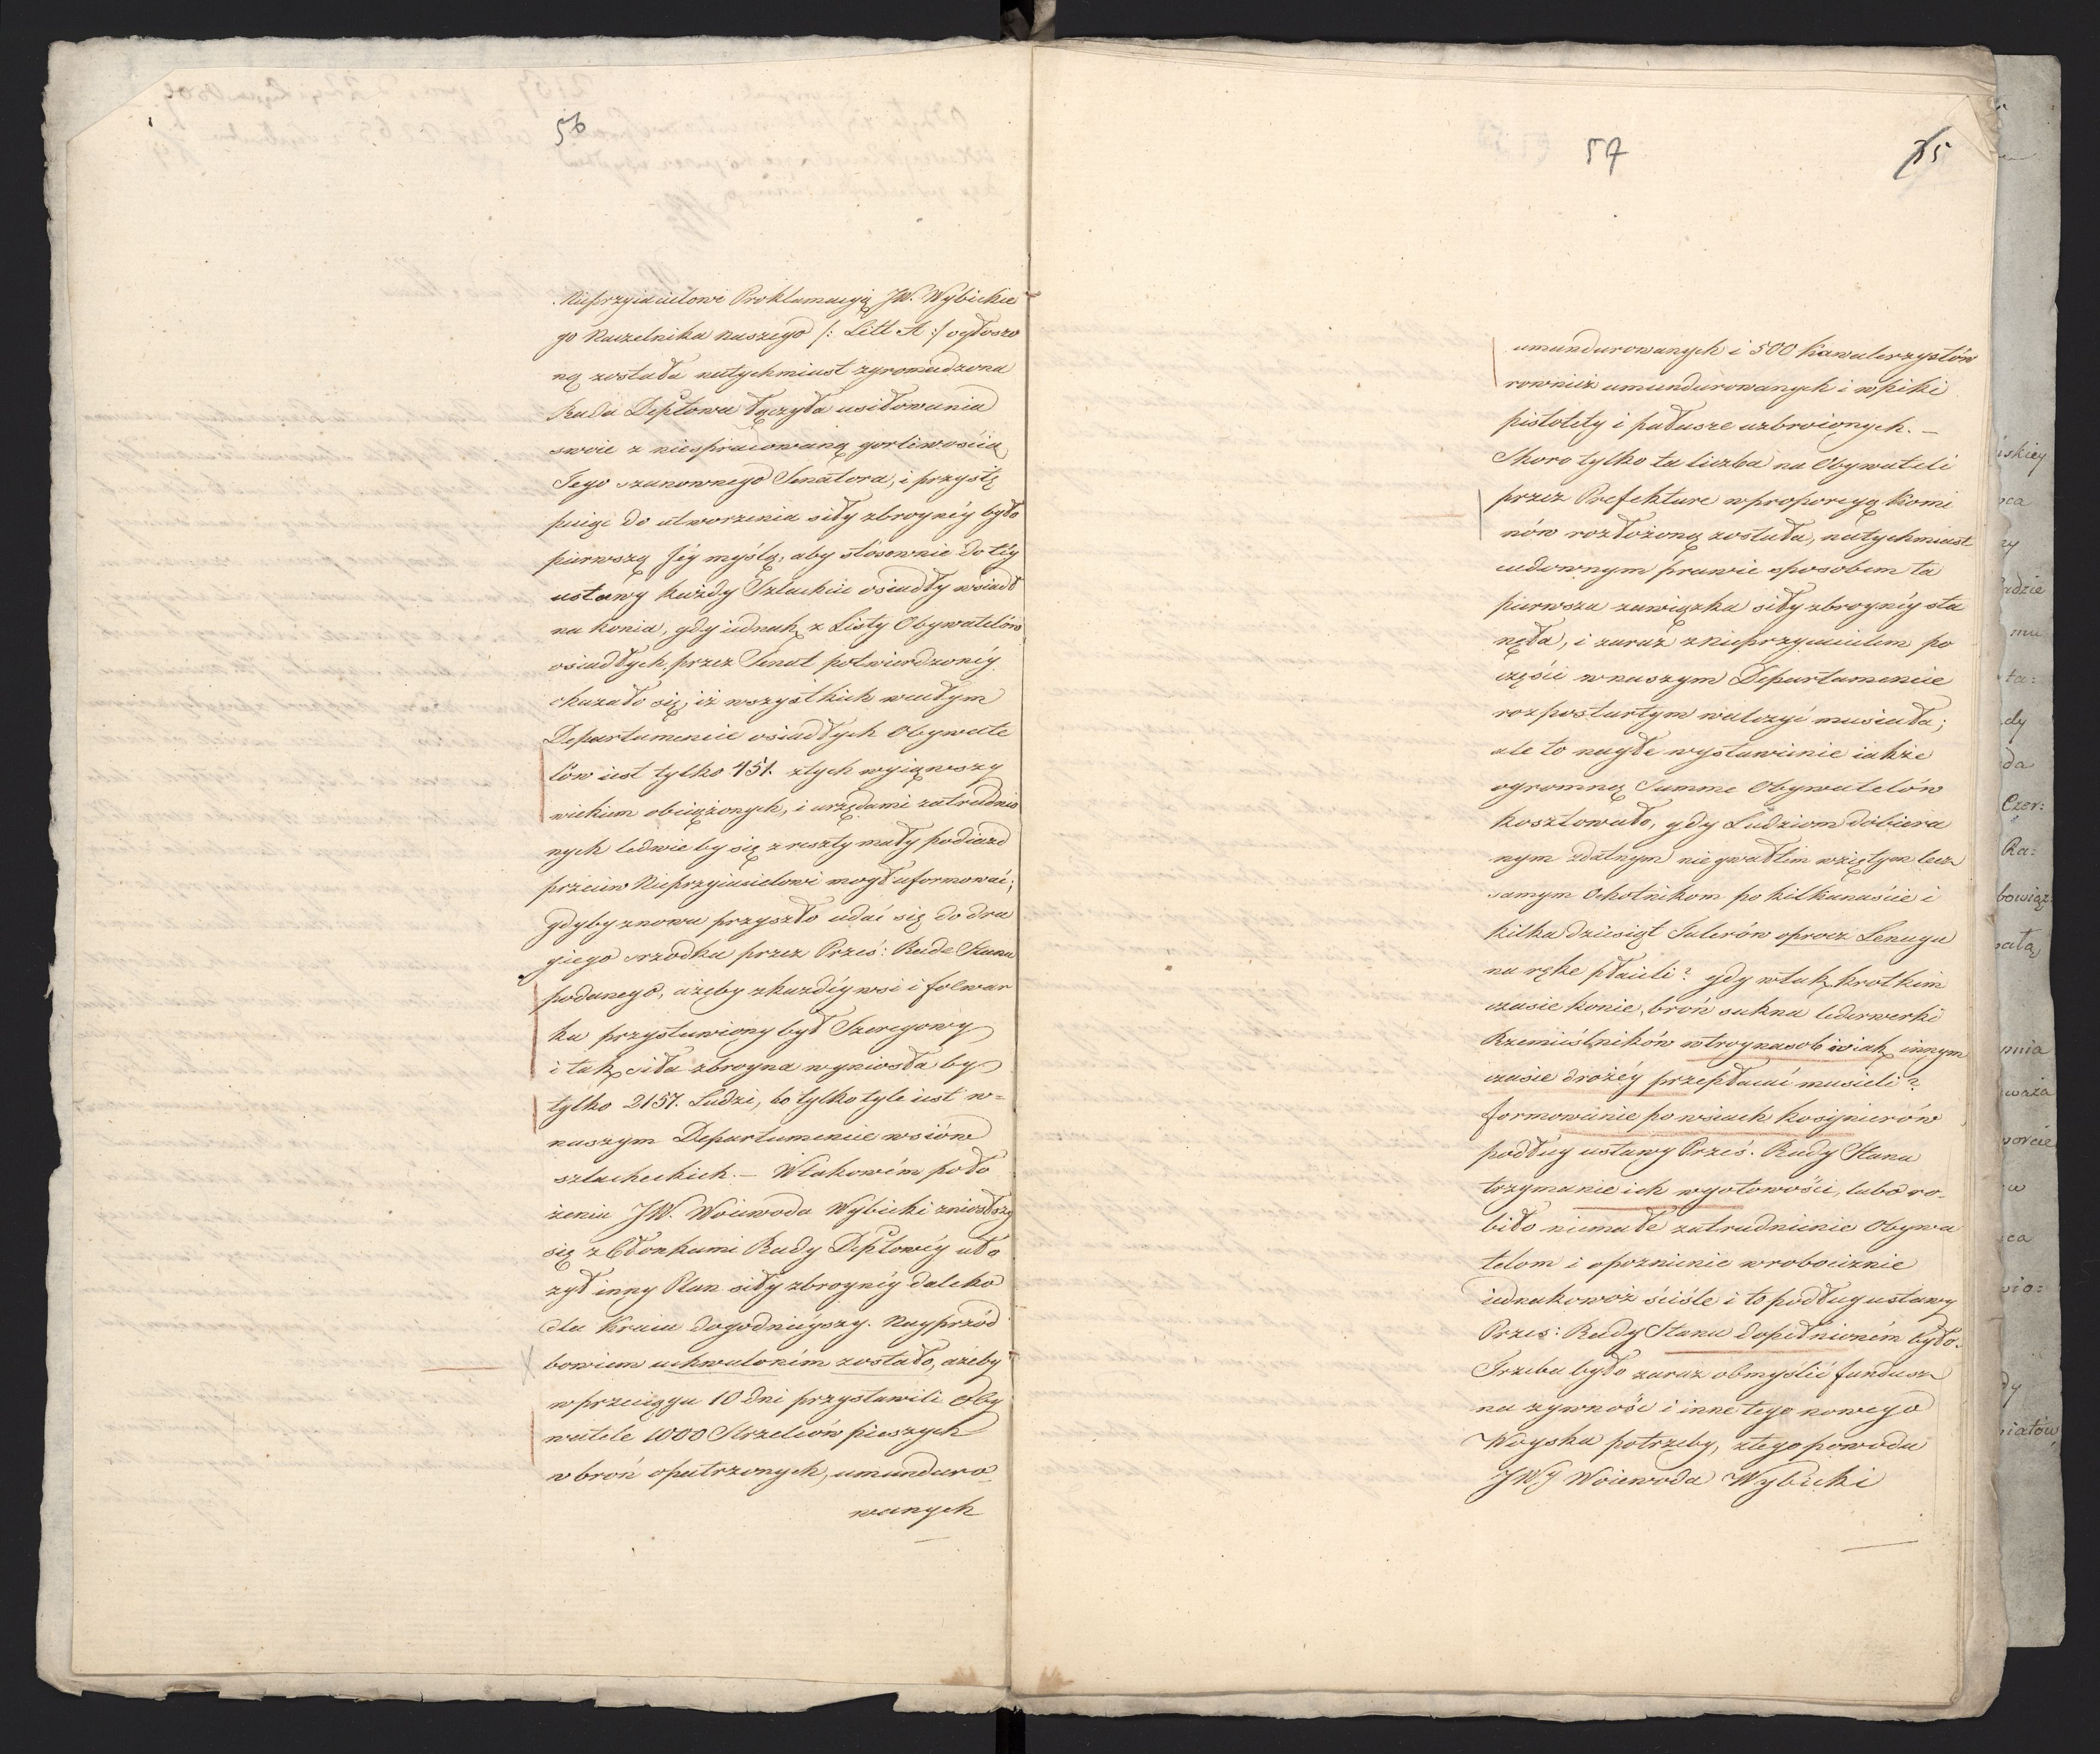 56
Nieprzyiacielowi Proklamacyą JW. Wybickie
go Naczelnika naszego /: Litt A :/ ogłoszo
ną została natychmiast zgromadzona
Rada Deptowa łączyła usiłowania
swoie z niespracowaną gorliwością
Tego szanownego Senatora, i przystę
puiąc do utworzenia siły zbroyney było
pierwszą Jéy myślą, aby stósownie do téy
ustawy każdy Szlachcic osiadły wsiadł
na konia, gdy iednak z Listy Obywatelów
osiadłych przez Senat potwierdzonéy
okazało się, iż wszystkich w całym
Departamencie osiadłych Obywate
lów iest tylko 451. z tych wyiąwszy
wiekiem obciążonych, i urzędami zatrudnio
nych ledwie by się z reszty mały podiazd
przeciw Nieprzyiacielowi mogł uformować;
gdyby znowu przyszło udać się do dru
giego srzodka przez Prześ: Radę Stanu
podanego, ażeby z każdéy wsi i folwar
ku przystawiony był Szeregowy
i tak siła zbroyna wyniosła by
tylko 2157. Ludzi, bo tylko tyle iest w=
naszym Departamencie wsiów
szlacheckich. — W takowém poło
żeniu JW. Woiewoda Wybicki zniosłszy
się z Członkami Rady Deptowéy uło
żył inny Plan siły zbroynéy daleko
dla Kraiu dogodnieyszy. Nayprzód
bowiem uchwaloném zostało, ażeby
w przeciągu 10 dni przystawili Oby
watele 1000 Strzelców pieszych
w broń opatrzonych, umunduro
wanych
57
75
umundurowanych i 500 Kawalerzystów
rownież umundurowanych i w piki
pistolety i pałasze uzbroionych. —
Skoro tylko ta liczba na Obywateli
przez Prefekture w proporcyą Komi
nów rozłożoną została, natychmiast
cudownym prawie sposobem ta
pierwsza zawiązka siły zbroynéy sta
nęła, i zaraz z nieprzyiacielem po
części w naszym Departamencie
rozpostartym walczyć musiała;
ale to nagłe wystawienie iakże
ogromną Summe Obywatelów
kosztowało, gdy Ludziom dobiera
nym zdatnym nie gwałtem wziętym lecz
samym Ochotnikom po kilkanaście i
kilka dziesiąt Talerów oprocz Lenugu
na rękę płacili? gdy w tak krotkim
czasie konie, broń sukna lederwerki
Rzemieślników w troynasob iak innym
czasie drożéy przepłacać musieli?
formowanie po wsiach kosynierów
podług ustawy Prześ. Rady Stanu
trzymanie ich w gotowości, lubo ro-
biło niemałe zatrudnienie Obywa
telom i opoznienie w robociznie
iednakowoż ściśle i to podług ustawy
Przes: Rady Stanu dopełnioném było.
Trzeba było zaraz obmyślić fundusz
na zywność i inne tego nowego
Woyska potrzeby, z tego powodu
JWJ Woiewoda Wybicki